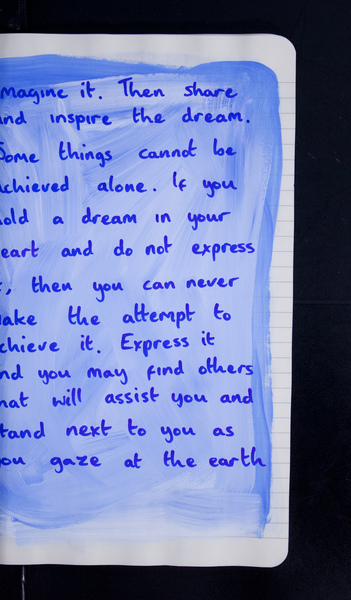 magine it. Then share
nd inspire the dream.
Some things cannot be
chieved alone. If you
old a dream in your
eart and do not express
t, then you can never
ake the attempt to
chieve it. Express it
nd you may find others
hat will assist you and
tand next to you as
ou gaze at the earth